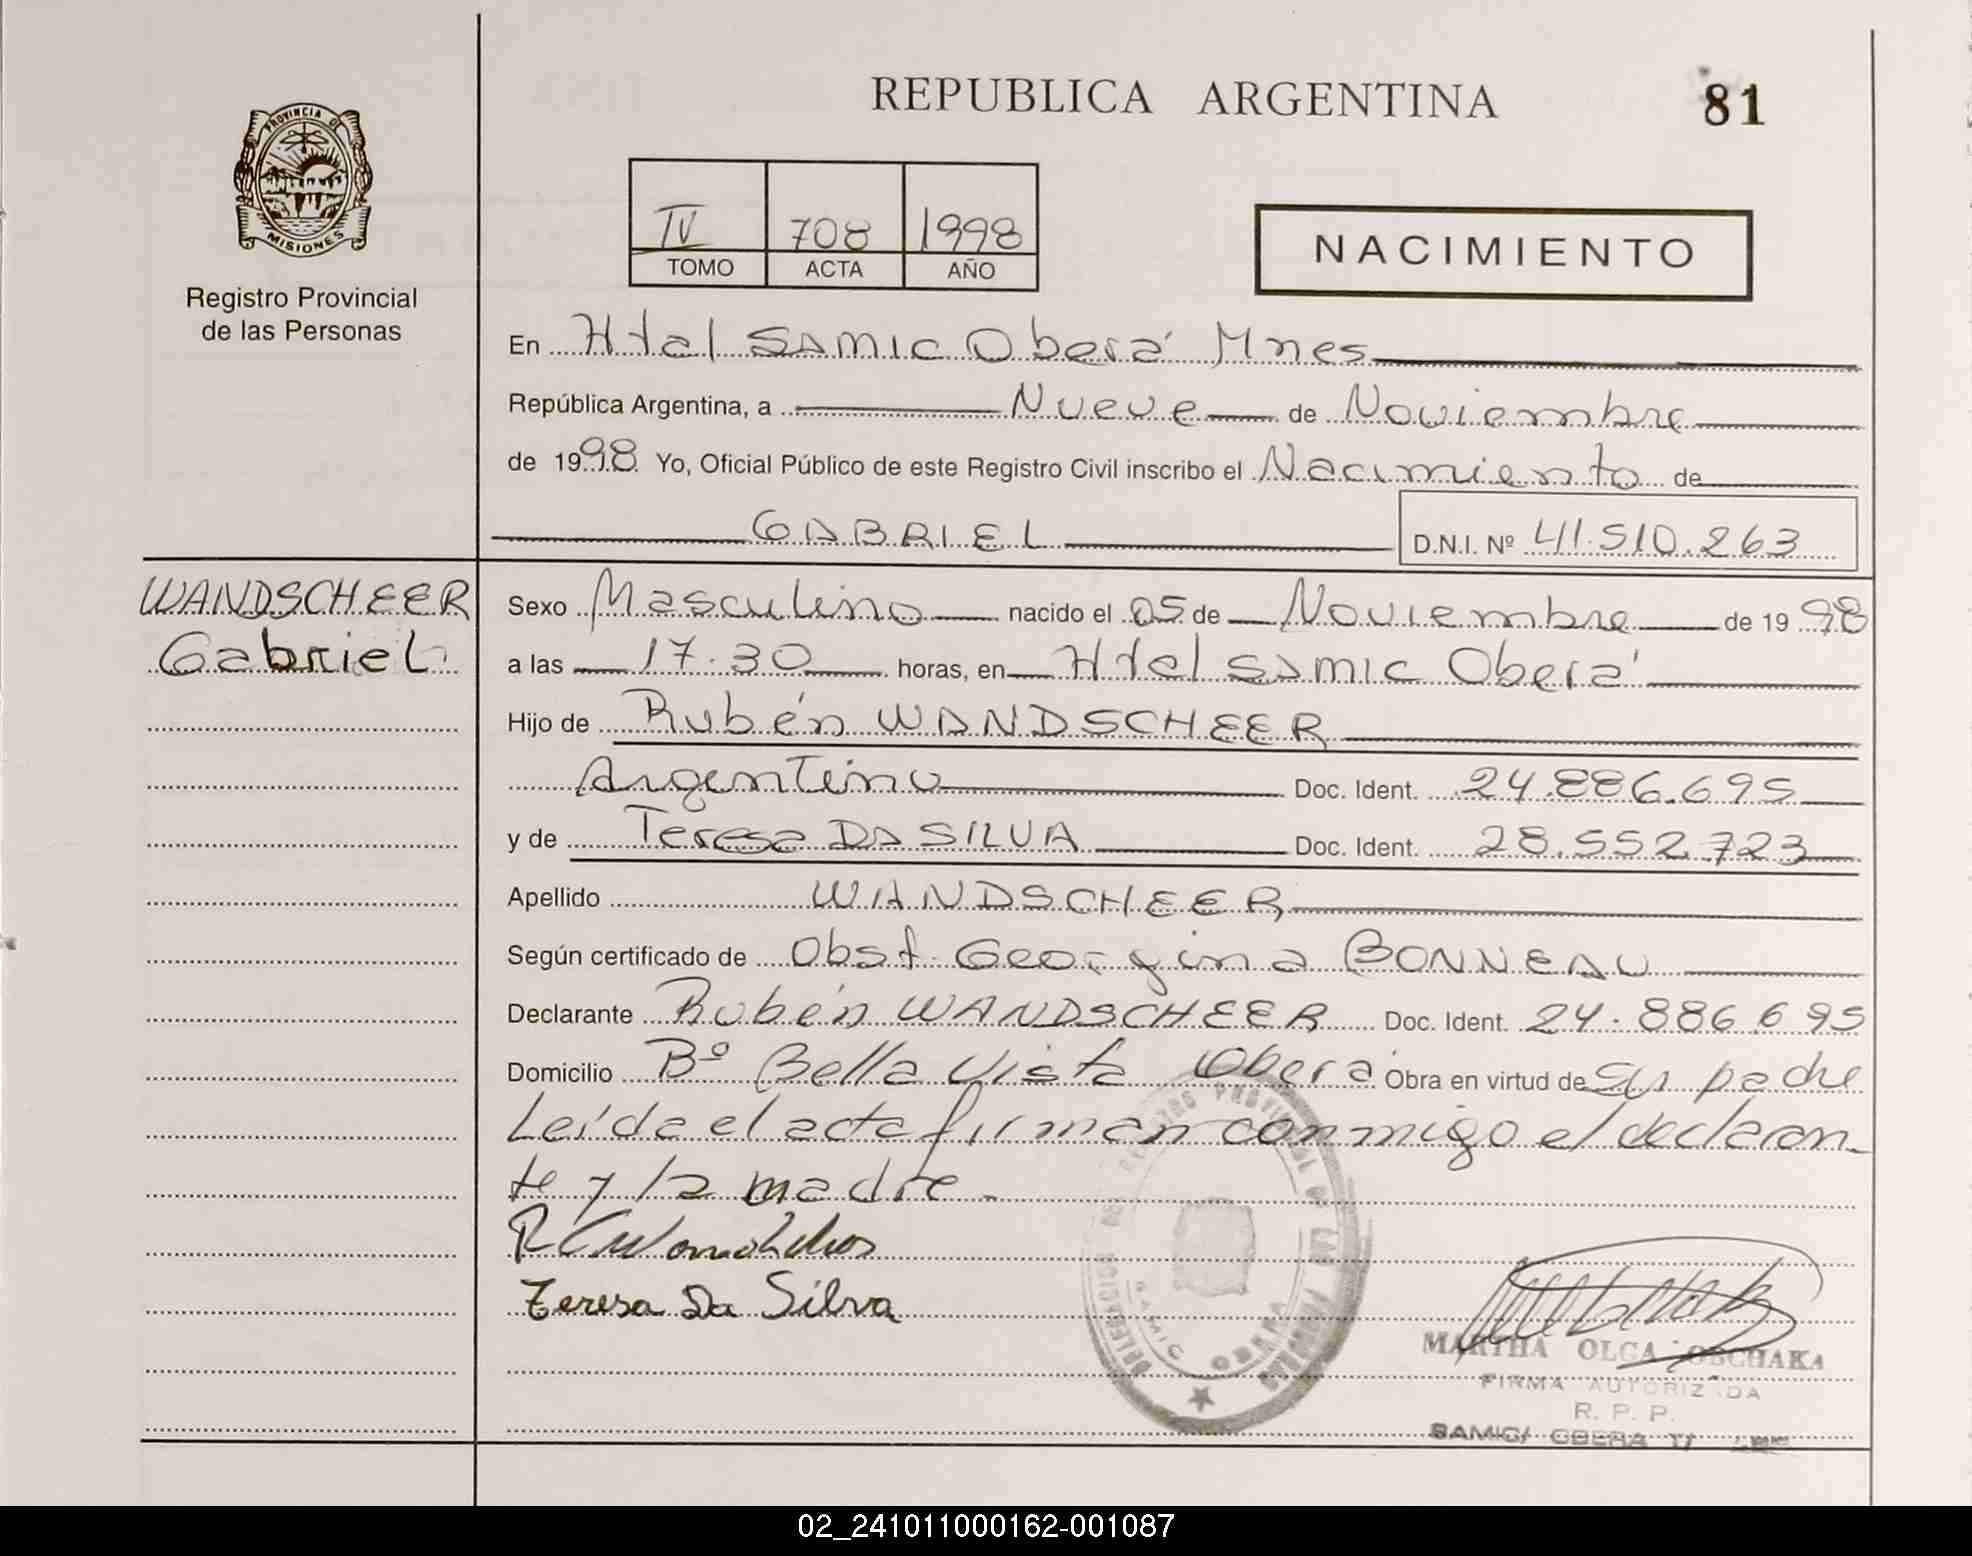 REPUBLICA ARGENTINA
81
PROVINCIA DE
MISIONES
Registro Provincial
de las Personas
IV 708 1998
TOMO ACTA AÑO
NACIMIENTO
En Htal SAMIC Oberá Mnes
República Argentina, a Nueve de Noviembre
de 1998. Yo, Oficial Público de este Registro Civil inscribo el Nacimiento de
GABRIEL D.N.I. Nº 41.510.263
WANDSCHEER
Gabriel
Sexo Masculino nacido el 05 de Noviembre de 1998
a las 17.30 horas, en Htal SAMIC Oberá
Hijo de Rubén WANDSCHEER
Argentino Doc. Ident. 24.886.695
y de Teresa DA SILVA Doc. Ident. 28.552.723
Apellido WANDSCHEER
Según certificado de Obst. Georgina BONNEAU
Declarante Rubén WANDSCHEER Doc. Ident. 24.886.695
Domicilio Bº Bella Vista Oberá Obra en virtud de su padre
Leída el acta firman conmigo el declaran-
te y la madre.
Teresa Da Silva
MARTHA OLGA OBCHAKA
FIRMA AUTORIZADA
R. P. P.
SAMIC/ OBERA
02_241011000162-001087